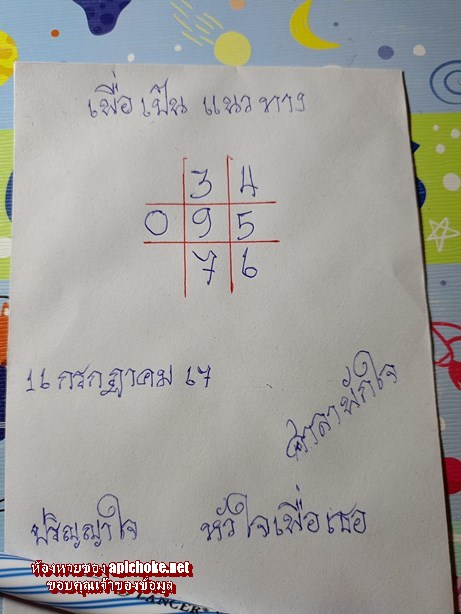 เพื่อเป็น แนวทาง
3 4
0 9 5
7 6
16 กรกฎาคม 67
ศาลาพักใจ
ปริญญาใจ
หัวใจเพื่อเธอ
ห้องหวยซอง apichoke.net
ขอบคุณเจ้าของข้อมูล
LANCER